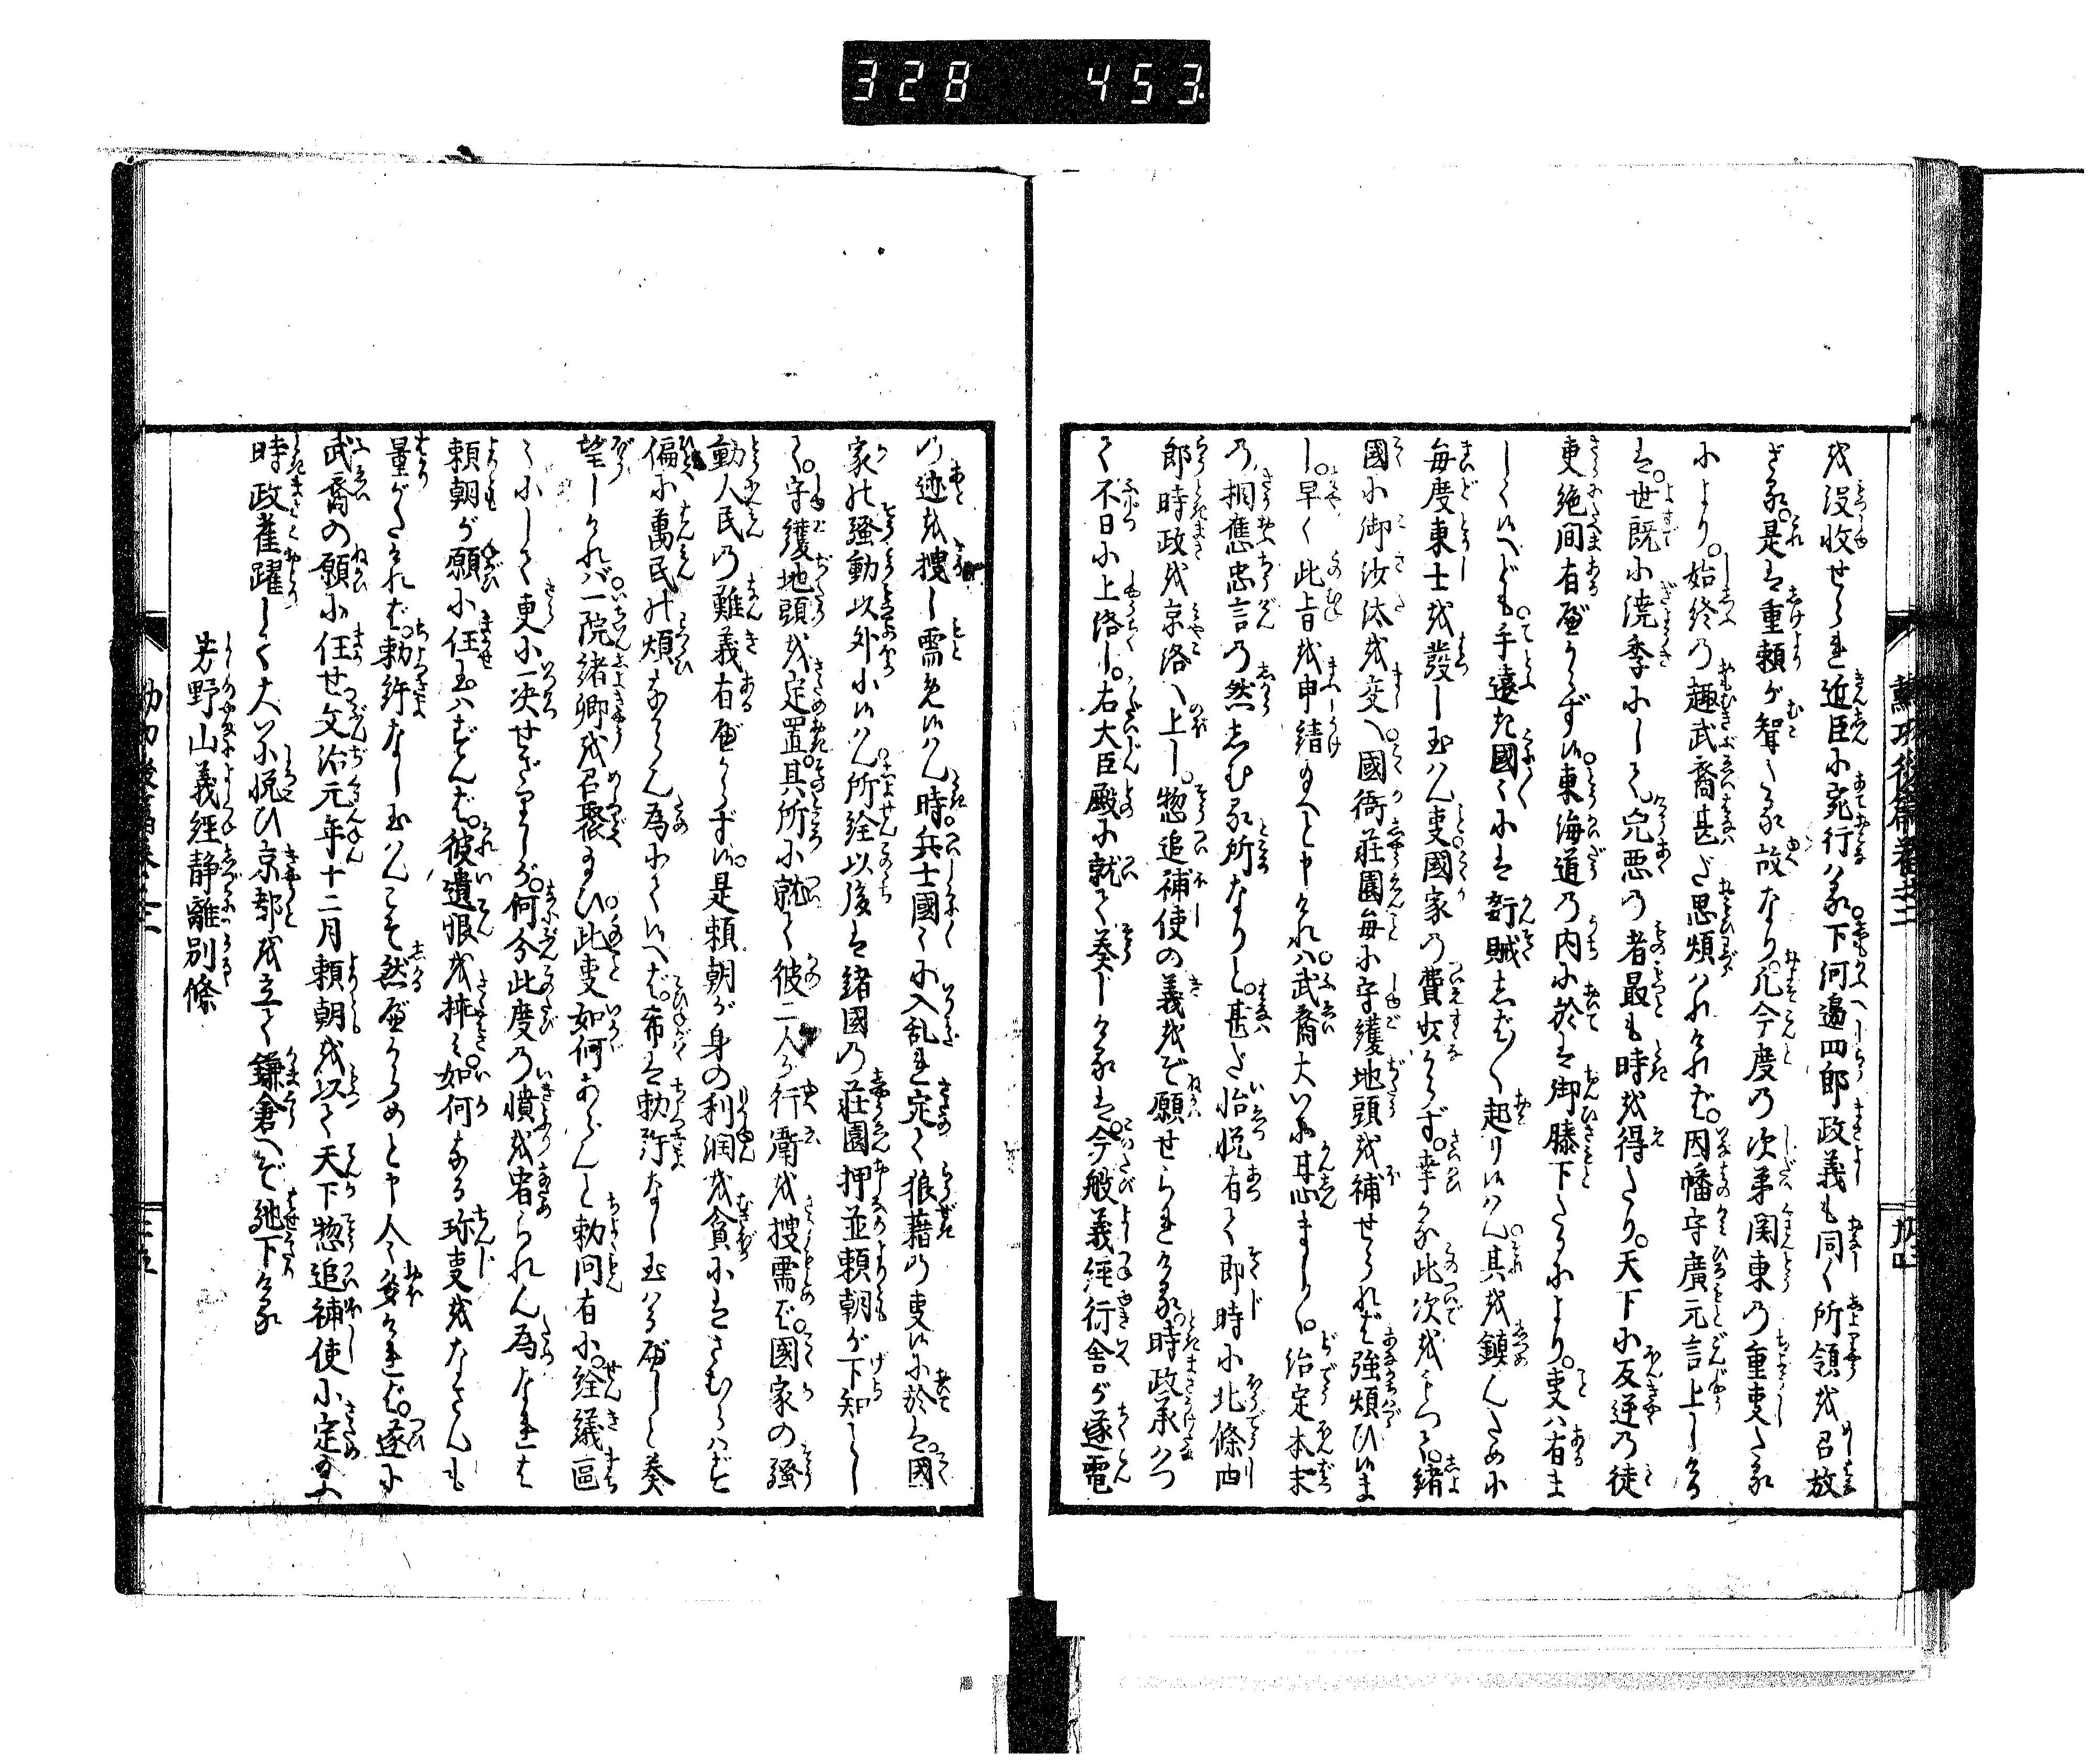 328 453
を没收せられ近臣に宛行はる下河邉四郎政義も同く所領を召放
ざる是は重頼が聟たる故なり凡今度の次第関東の重事たる
により始終の趣武裔甚だ思煩はれければ因幡守廣元言上しける
は世既に澆季にして兇悪の者最も時を得たり天下に反逆の徒
更絶間有べからず候東海道の内に於は御膝下たるにより事は有ま
しく候へども手遠き國々には奸賊しば〱起り候はん其を鎮んために
毎度東士を發し玉はん事國家の費少からず幸かな此次をもつて諸
國に御沙汰を交へ國衙荘園毎に守護地頭を補せられば強煩ひ候ま
し早く此旨を申結玉へと申ければ武裔大いに甘心まし〱治定本末
の相應忠言の然しむる所なりと甚だ怡悦有て即時に北條四
郎時政を京洛へ上し惣追補使の義をぞ願せられける時政承はつ
て不日に上洛し右大臣殿に就て奏しけるは今般義經行舎が逐電
の迹を捜し需め候はん時兵士國々に入乱れ定て狼藉の事候に於は國
家の騒動以外に候はん所詮以後は諸國の荘園押並頼朝が下知とし
て守護地頭を定置其所に就て彼二人が行衛を捜需ば國家の騒
動人民の難義有べからず候是頼朝が身の利潤を貪にはさむらはず
偏に萬民の煩なからん為にて候へば希は勅許なし玉はるべしと奏
望しければ一院諸卿を召聚玉ひ此事如何あらんと勅問有に詮議區
々にして更に一決せざりしが何分此度の憤を宥られん為なれは
頼朝が願に任玉はずんば彼遺恨を挟み如何なる珍事をなさんも
量がたければ勅許なし玉はんこそ然べからめと申人々多ければ遂に
武裔の願に任せ文治元年十二月頼朝を以て天下惣追補使に定玉ふ
時政雀躍して大いに悦ひ京都を立て鎌倉へぞ馳下ける
芳野山義經静離別條